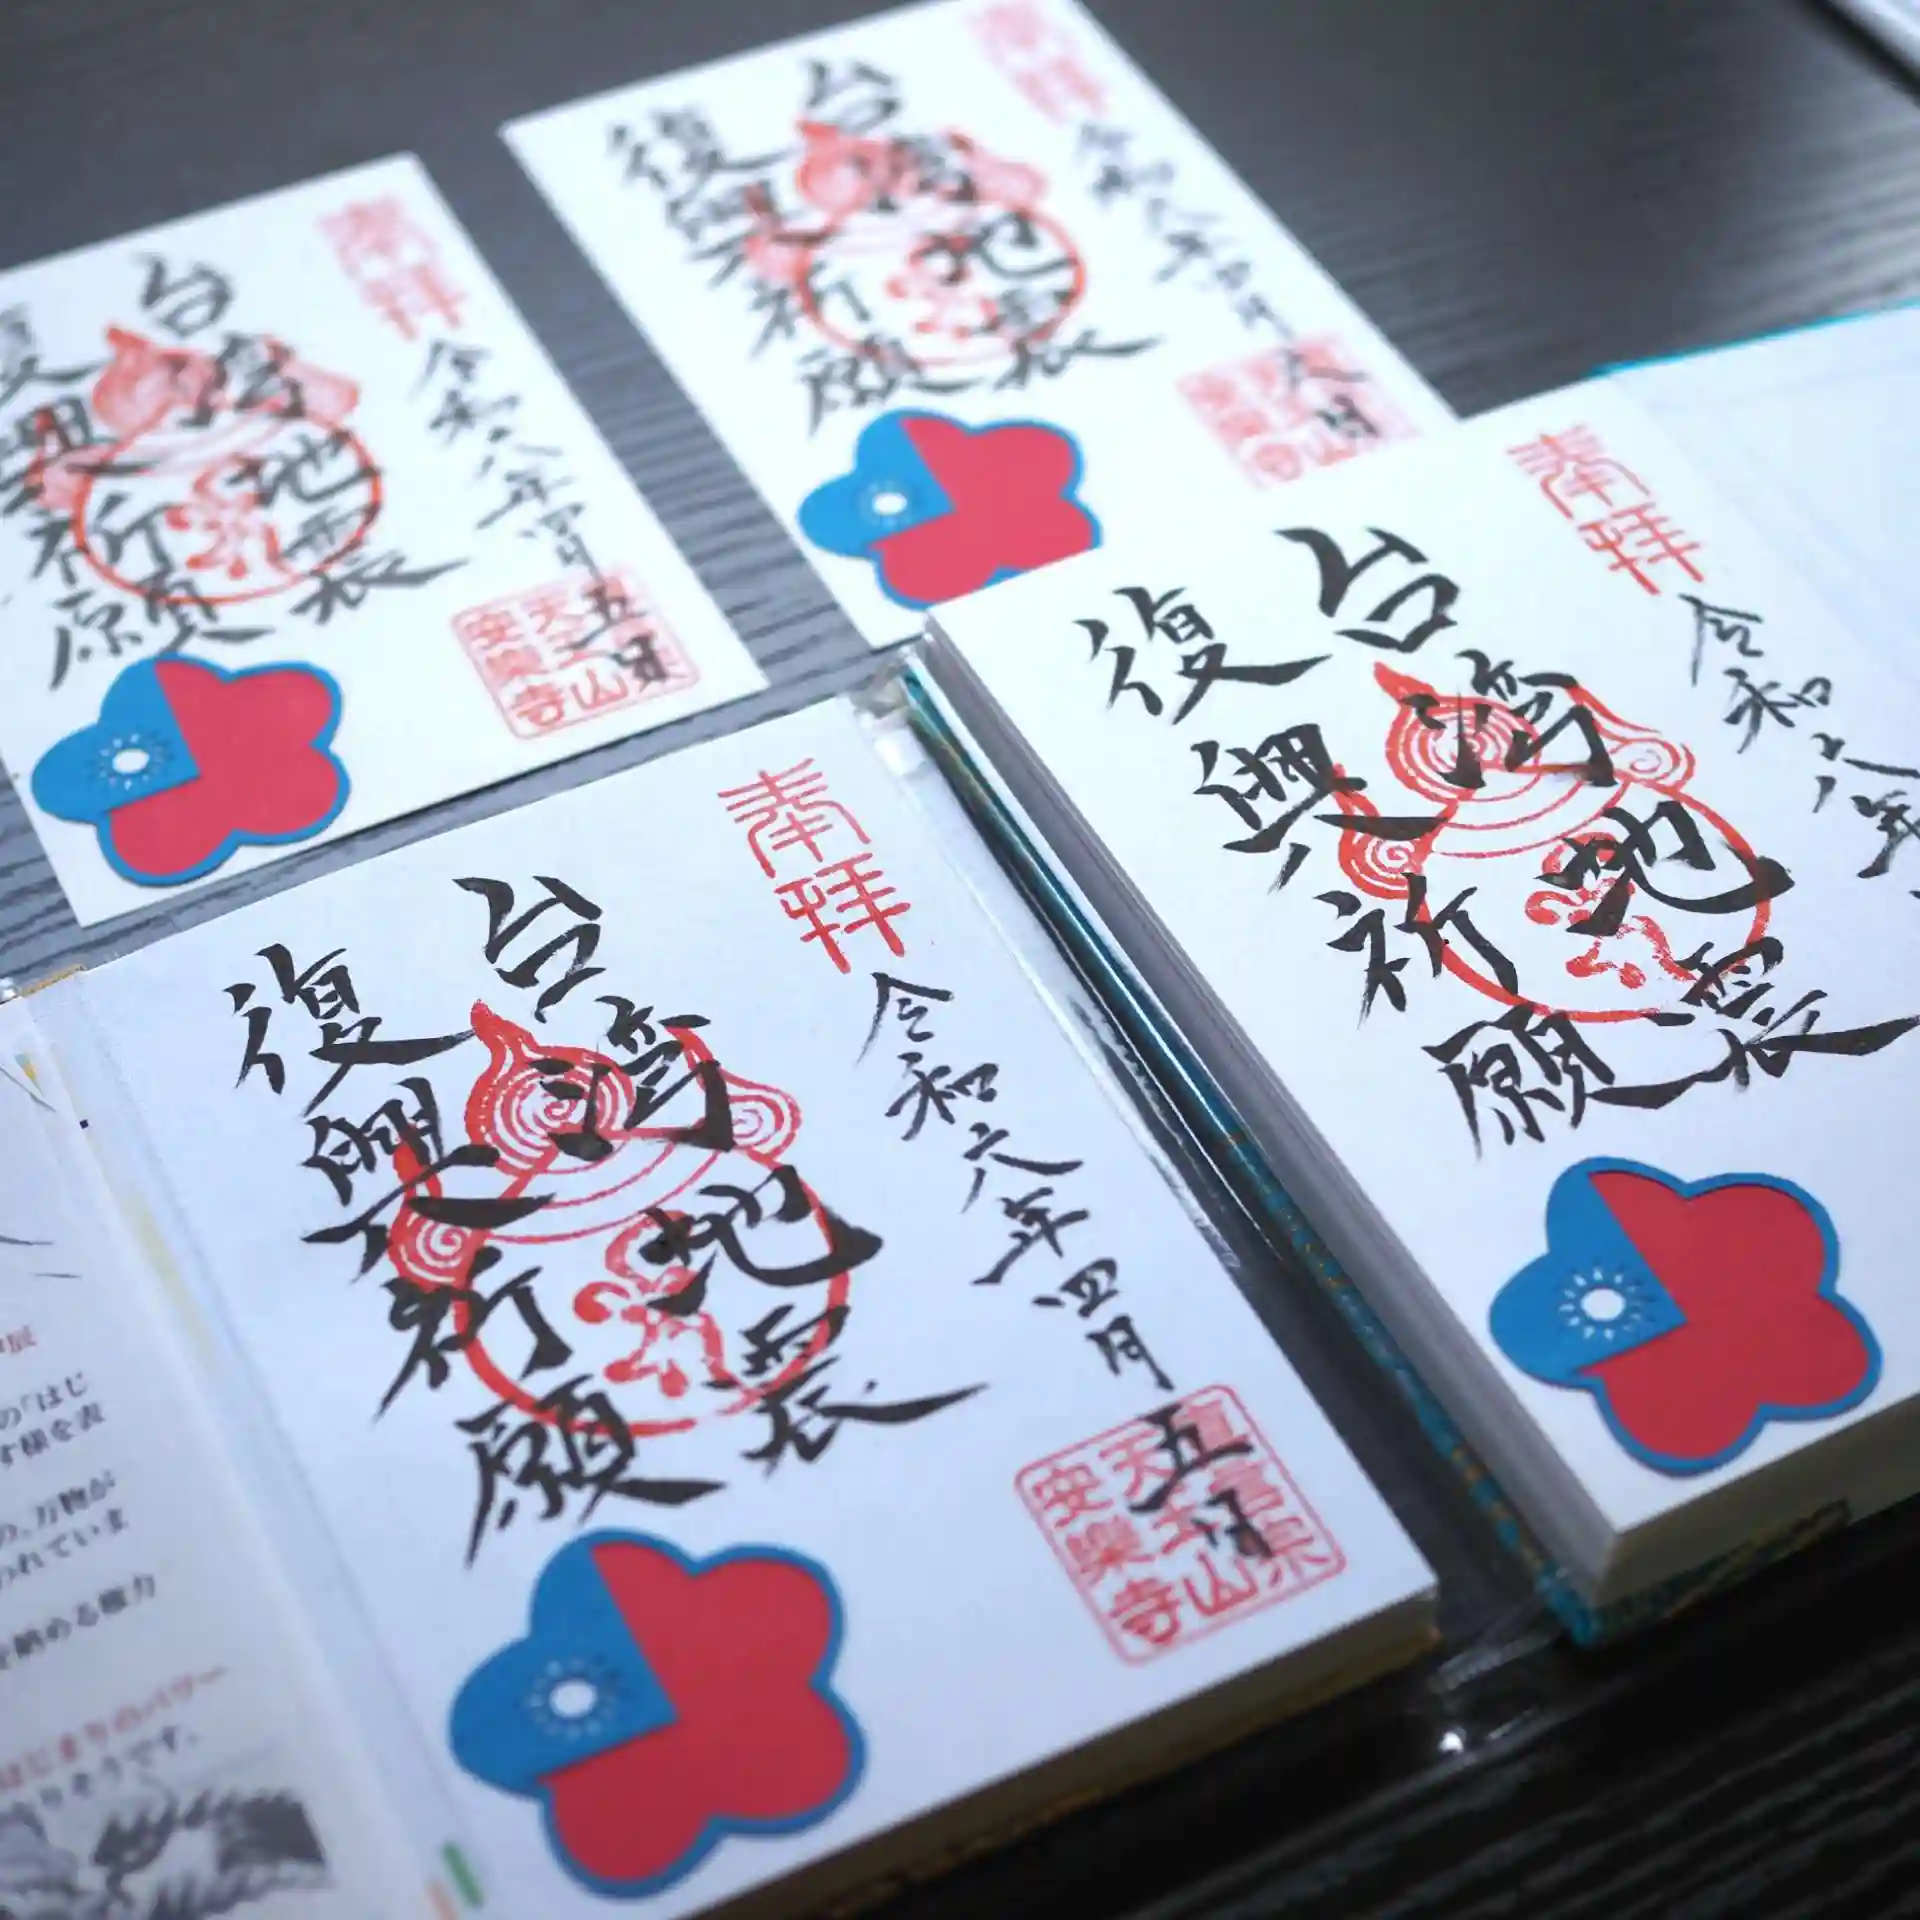 奉拝
台湾地震
復興祈願
令和六年四月五日
真言宗
天王山
安樂寺
奉拝
台湾地震
復興祈願
令和六年
奉拝
台湾地震
復興祈願
令和六年四月五日
天王山
安樂寺
奉拝
台湾地震
復興祈願
令和六年四月八日
の「はじ
す様を表
の、万物が
われていま
を納める磁力
はじまりのパワー
なりそうです。